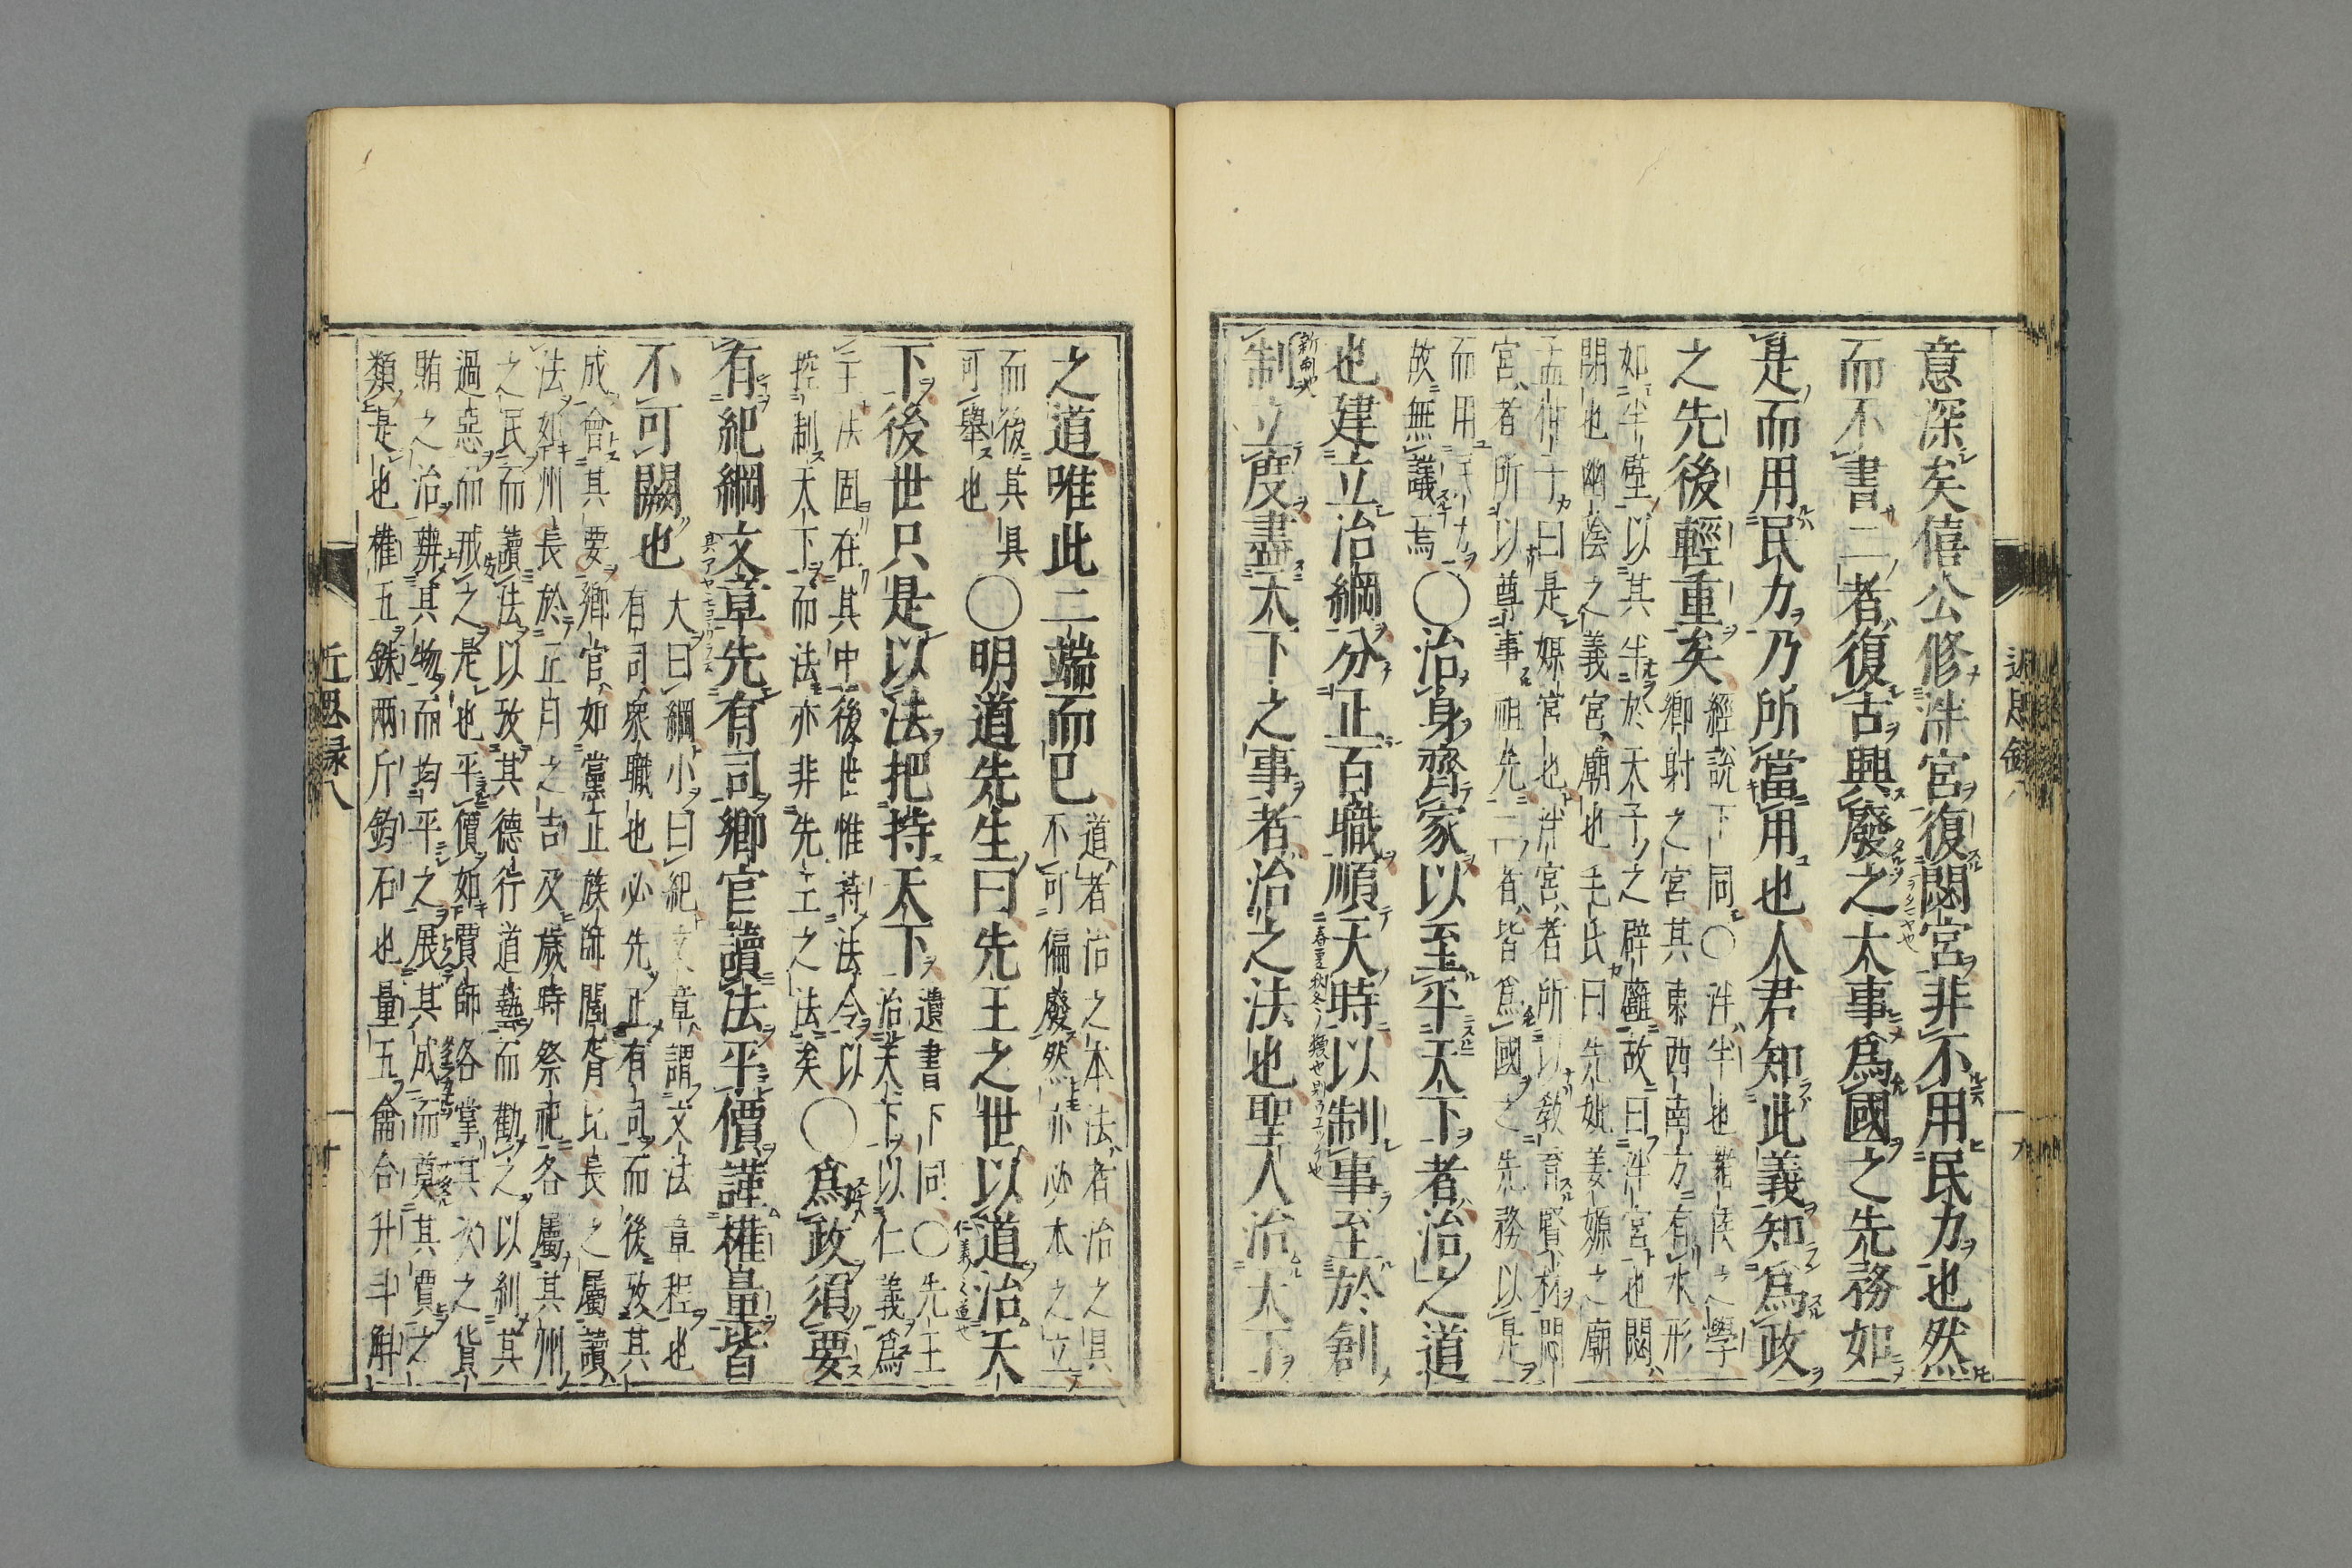 意深矣僖公修泮宮復閟宮非不用民力也然
而不書二者復古興廢之大事爲國之先務如
是而用民力乃所當用也人君知此義知爲政
之先後輕重矣
經說下同〇泮半也諸侯之學
鄉射之宮其東西南方有水形
如半璧以其半於天子之辟廱故曰泮宮也閟
閉也幽陰之義宮廟也毛氏曰先妣姜嫄之廟
孟仲子曰是媒宮也泮宮者所以教育賢材閟
宮者所以尊事祖先二者皆爲國之先務以是
而用民力
故無議焉
〇治身齊家以至平天下者治之道
也建立治綱分正百職順天時以制事至於創
制立度盡天下之事者治之法也聖人治天下
近思錄八
九
之道唯此二端而已
道者治之本法者治之具
不可偏廢然亦必本之立
而後其具
可舉也
〇明道先生曰先王之世以道治天
下後世只是以法把持天下
遺書下同〇先王
治天下以仁義爲
主法固在其中後世惟持法令以
控制天下而法亦非先王之法矣
〇爲政須要
有紀綱文章先有司鄉官讀法平價謹權量皆
不可闕也
大曰綱小曰紀文章謂文法章程也
有司衆職也必先正有司而後攷其
成會其要鄉官如黨正族師閭胥比長之屬讀
法如州長於正月之吉及歲時祭祀各屬其州
之民而讀法以攷其德行道藝而勸之以糾其
過惡而戒之是也平價如賈師各掌其次之貨
賄之治辨其物而均平之展其成而奠其賈之
類是也權五銖兩斤鈞石也量五龠合升斗斛
近思錄八
十